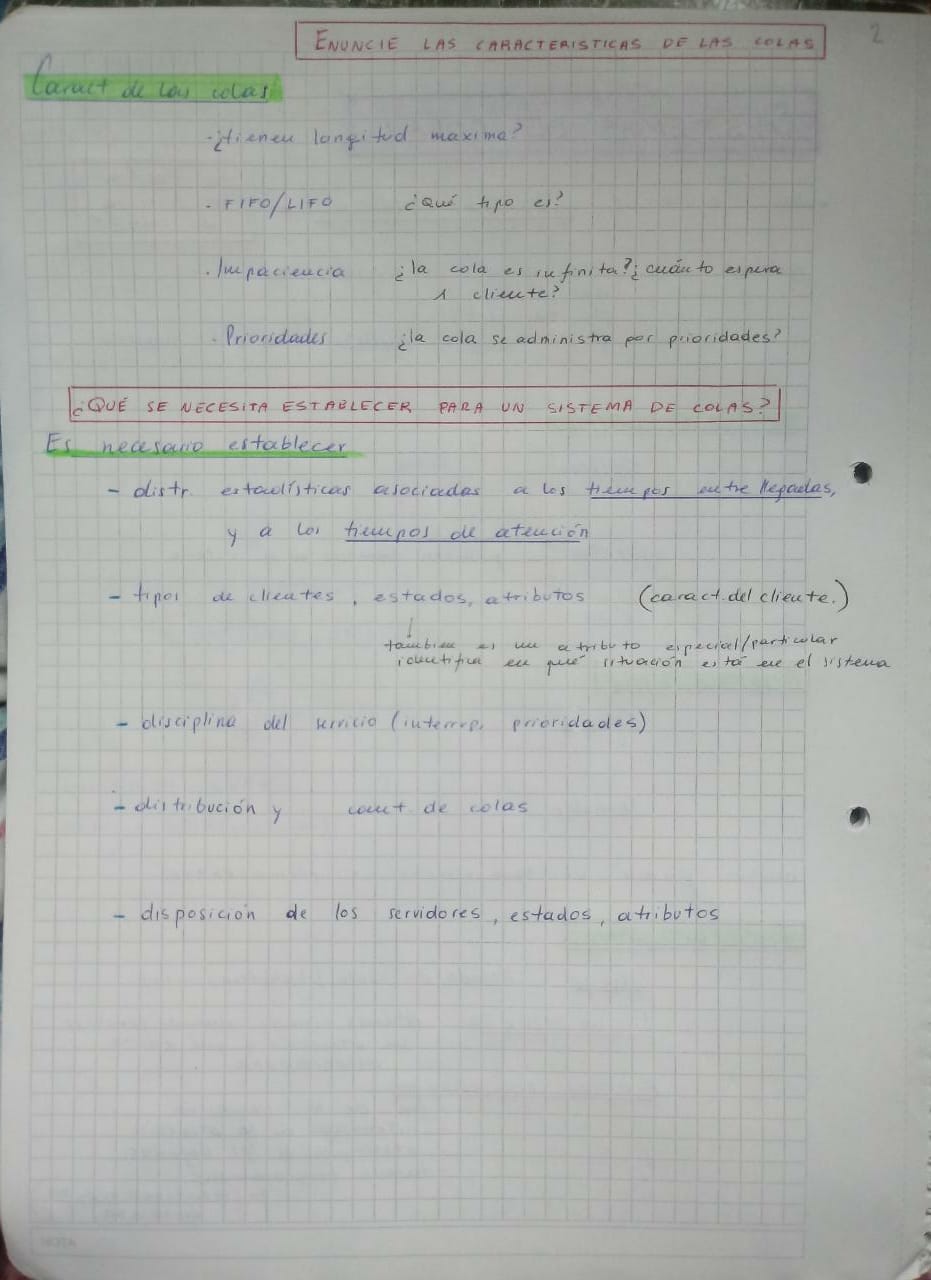 ENUNCIE LAS CARACTERISTICAS DE LAS COLAS
2
Caract de las colas
- ¿tienen longitud maxima?
- FIFO/LIFO ¿Qué tipo es?
- Impaciencia ¿la cola es infinita? ¿cuánto espera
1 cliente?
- Prioridades ¿la cola se administra por prioridades?
¿QUÉ SE NECESITA ESTABLECER PARA UN SISTEMA DE COLAS?
Es necesario establecer
- distr. estadísticas asociadas a los tiempos entre llegadas,
y a los tiempos de atención
- tipos de clientes, estados, atributos (caract. del cliente.)
tambien es un atributo especial/particular
identifica en qué situación está en el sistema
- disciplina del servicio (interrup, prioridades)
- distribución y cant de colas
- disposición de los servidores, estados, atributos
NOTA